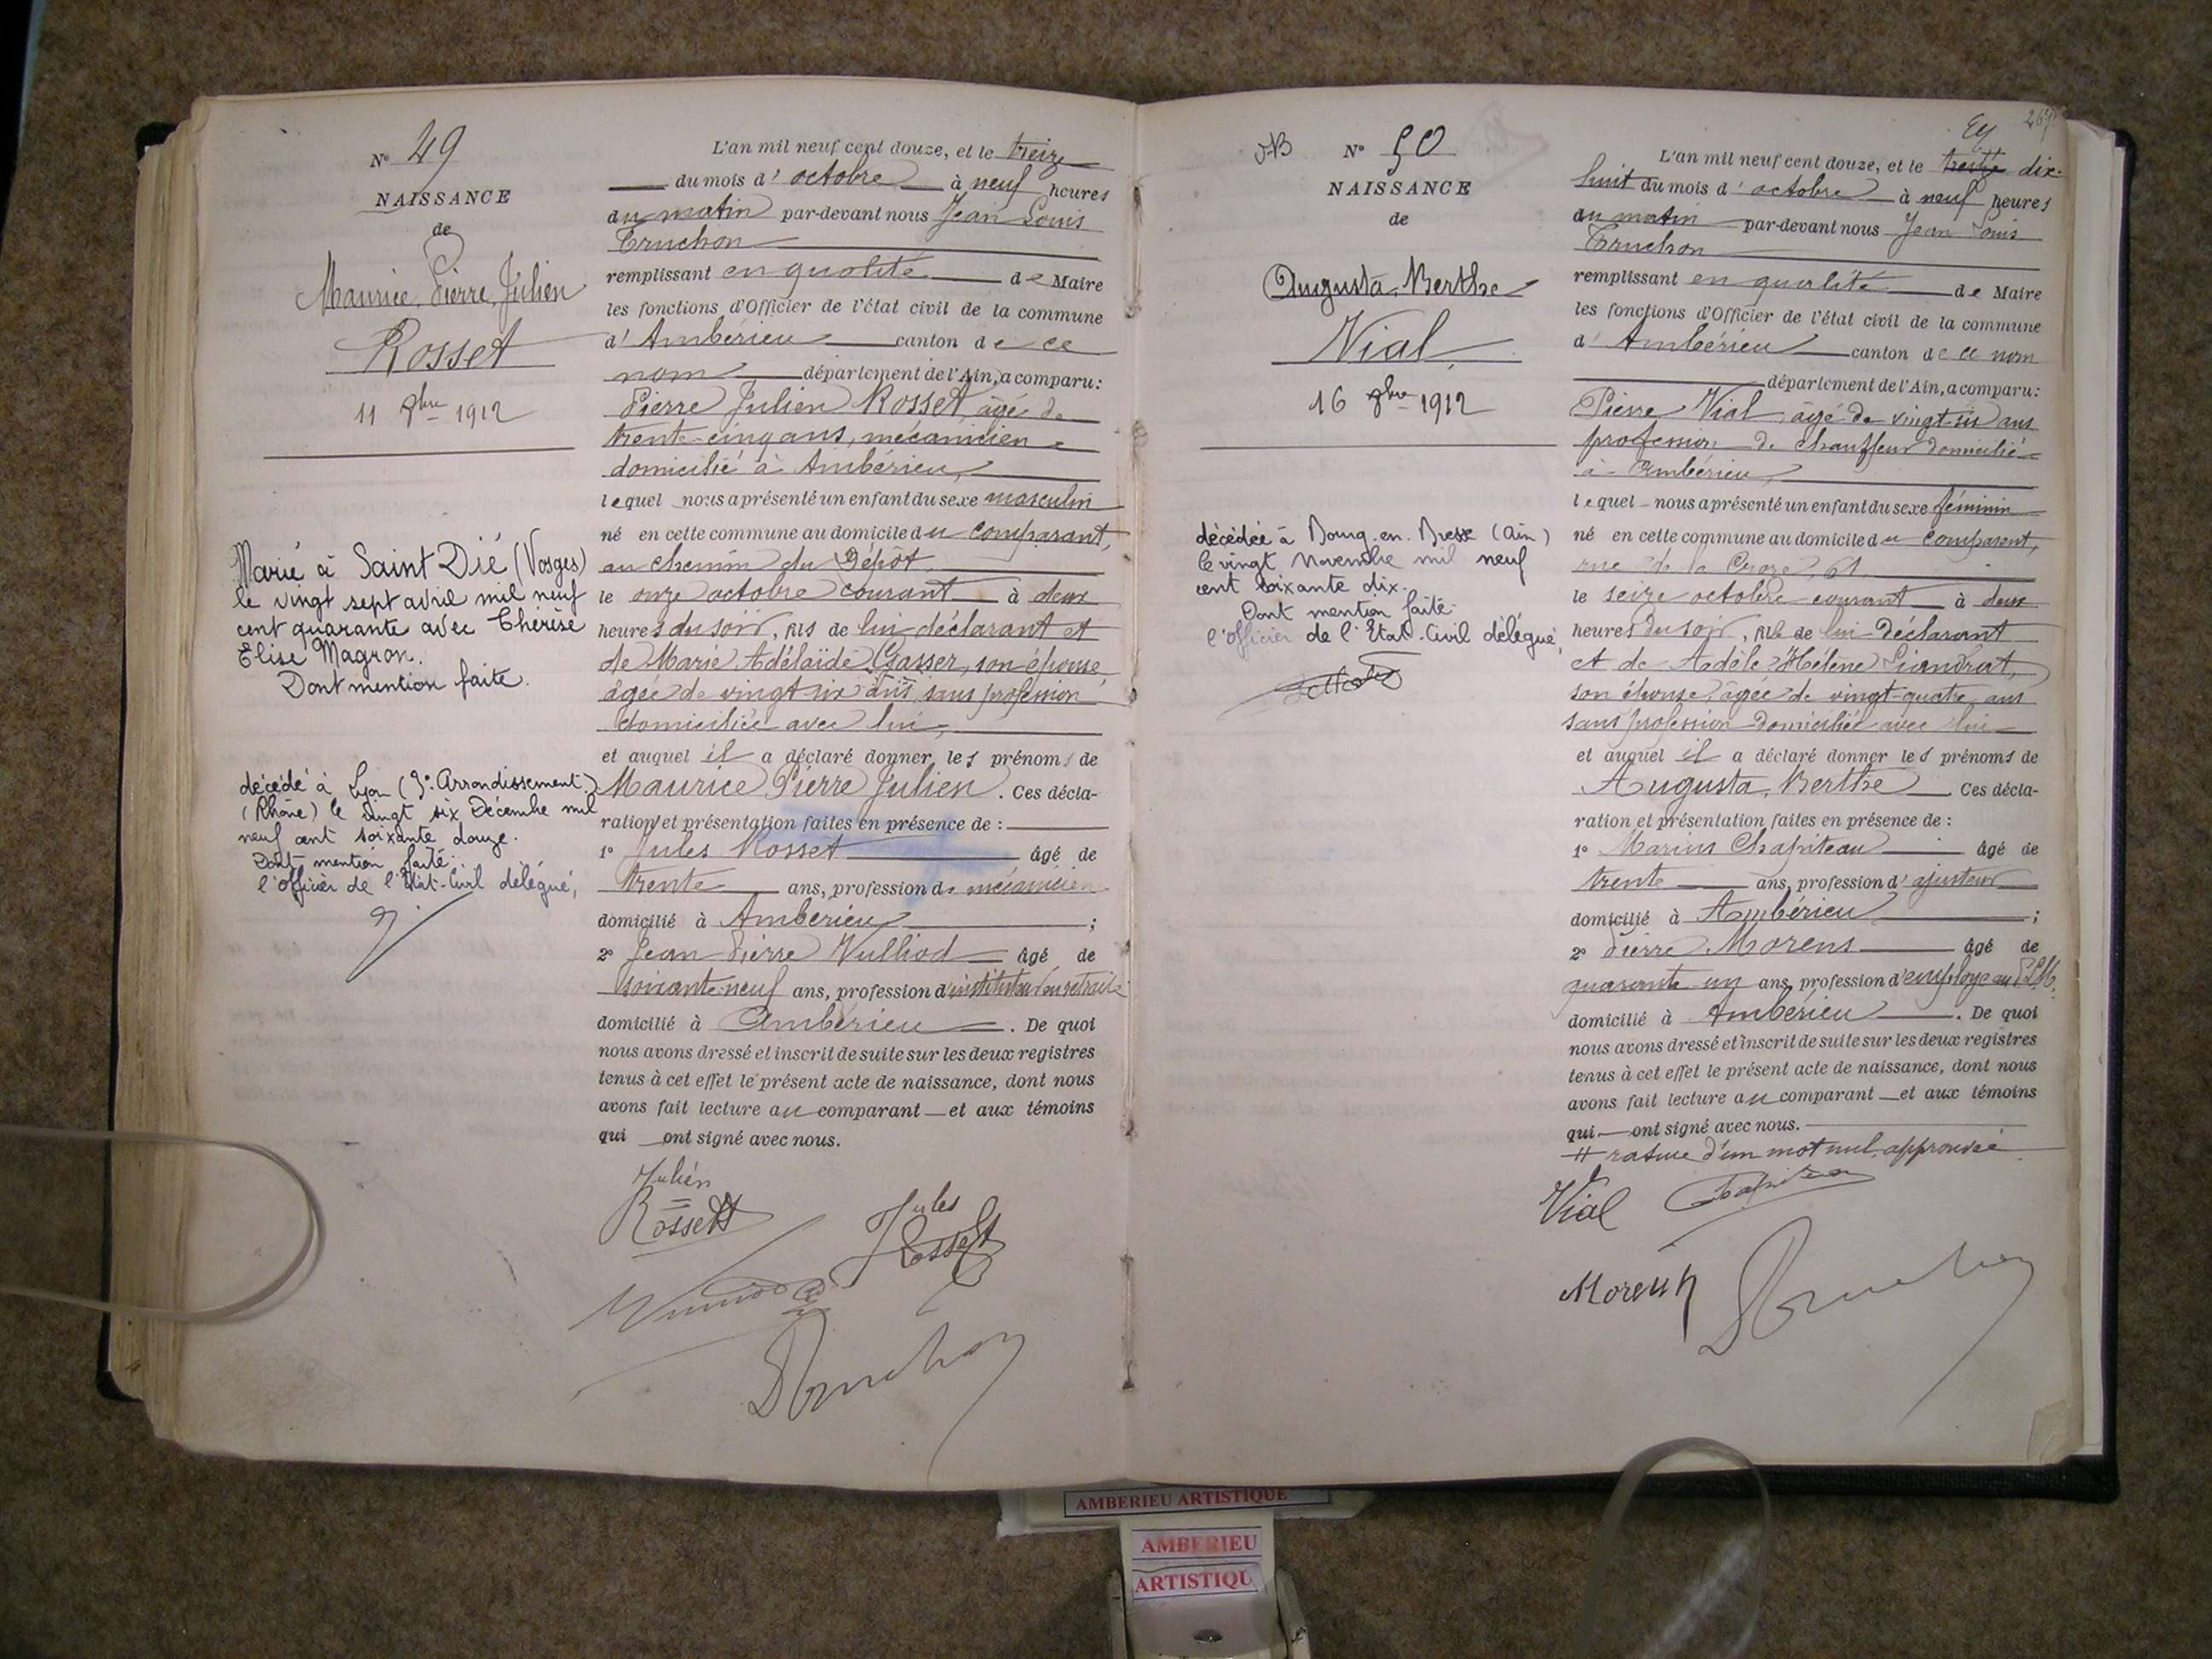 N° 49
NAISSANCE
de
Maurice, Pierre, Julien
Rosset
11 8bre 1912
Marié à Saint Dié (Vosges)
le vingt sept avril mil neuf
cent quarante avec Thérèse
Elise Magron.
Dont mention faite.
décédé à Lyon (3e Arrondissement)
(Rhône) le vingt six Décembre mil
neuf cent soixante douze.
Dont mention faite.
l'officier de l'Etat-Civil délégué,
L'an mil neuf cent douze, et le treize
du mois d'octobre à neuf heures
du matin par-devant nous Jean Louis
Truchon
remplissant en qualité de Maire
les fonctions d'Officier de l'état civil de la commune
d'Ambérieu canton de ce
nom département de l'Ain, a comparu:
Pierre Julien Rosset, âgé de
trente-cinq ans, mécanicien
domicilié à Ambérieu,
lequel nous a présenté un enfant du sexe masculin
né en cette commune au domicile du comparant,
au chemin du Dépôt,
le onze octobre courant à deux
heures du soir, fils de lui déclarant et
de Marie Adélaïde Gasser, son épouse,
âgée de vingt-six ans sans profession
domiciliée avec lui,
et auquel il a déclaré donner les prénoms de
Maurice Pierre Julien. Ces décla-
ration et présentation faites en présence de :
1° Jules Rosset âgé de
trente ans, profession de mécanicien
domicilié à Ambérieu ;
2° Jean Pierre Vulliod âgé de
soixante-neuf ans, profession d'instituteur en retraite
domicilié à Ambérieu. De quoi
nous avons dressé et inscrit de suite sur les deux registres
tenus à cet effet le présent acte de naissance, dont nous
avons fait lecture au comparant et aux témoins
qui ont signé avec nous.
Julien
Rosset
Jules
Rosset
Truchon
N° 50
NAISSANCE
de
Augusta, Berthe
Vial
16 8bre 1912
décédée à Bourg-en-Bresse (Ain)
le vingt Novembre mil neuf
cent soixante dix.
Dont mention faite.
l'officier de l'Etat-Civil délégué,
267
L'an mil neuf cent douze, et le treize dix-
huit du mois d'octobre à neuf heures
du matin par-devant nous Jean Louis
Truchon
remplissant en qualité de Maire
les fonctions d'Officier de l'état civil de la commune
d'Ambérieu canton de ce nom
département de l'Ain, a comparu:
Pierre Vial, âgé de vingt-six ans
profession de chauffeur domicilié
à Ambérieu,
lequel nous a présenté un enfant du sexe féminin
né en cette commune au domicile du comparant,
rue de la 61,
le seize octobre courant à deux
heures du soir, fils de lui Déclarant
et de Adèle Hélène
son épouse, âgée de vingt-quatre ans
sans profession domiciliée avec lui
et auquel il a déclaré donner les prénoms de
Augusta, Berthe Ces décla-
ration et présentation faites en présence de :
1° Marius Chapiteau âgé de
trente ans, profession d'ajusteur
domicilié à Ambérieu ;
2° Pierre Morens âgé de
quarante un ans, profession d'employé au P.L.M.
domicilié à Ambérieu. De quoi
nous avons dressé et inscrit de suite sur les deux registres
tenus à cet effet le présent acte de naissance, dont nous
avons fait lecture au comparant et aux témoins
qui ont signé avec nous.
# rature d'un mot nul approuvée
Vial
Truchon
AMBERIEU ARTISTIQUE
AMBERIEU
ARTISTIQU